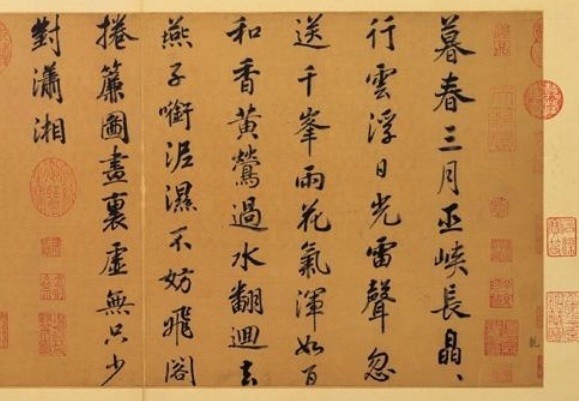 暮春三月巫峽長晶、
行雲浮日光雷聲忽
送千峯雨花氣渾如百
和香黃鶯過水翻迴去
燕子啣泥濕不妨飛閣
捲簾圖畫裏虛無只少
對瀟湘